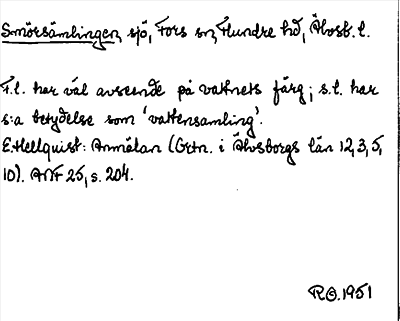 Smörsämlingen, sjö, Fors sn, Flundre hd, Älvsb. l.
F.l. har väl avseende på vattnets färg; s.l. har
s:a betydelse som 'vattensamling'.
E. Hellquist: Anmälan (Ortn. i Älvsborgs län 12, 3, 5,
10). ANF 25, s. 204.
R.O. 1951